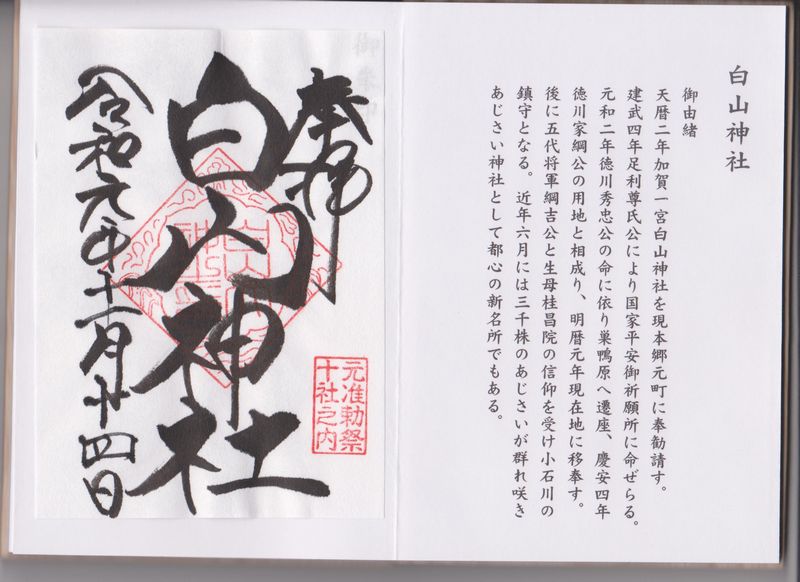 白山神社
御由緒
天暦二年加賀一宮白山神社を現本郷元町に奉勧請す。
建武四年足利尊氏公により国家平安御祈願所に命ぜらる。
元和二年徳川秀忠公の命に依り巣鴨原へ遷座、慶安四年
徳川家綱公の用地と相成り、明暦元年現在地に移奉す。
後に五代将軍綱吉公と生母桂昌院の信仰を受け小石川の
鎮守となる。近年六月には三千株のあじさいが群れ咲き
あじさい神社として都心の新名所でもある。
奉拝
白山神社
元准勅祭
十社之内
令和元年十一月廿四日